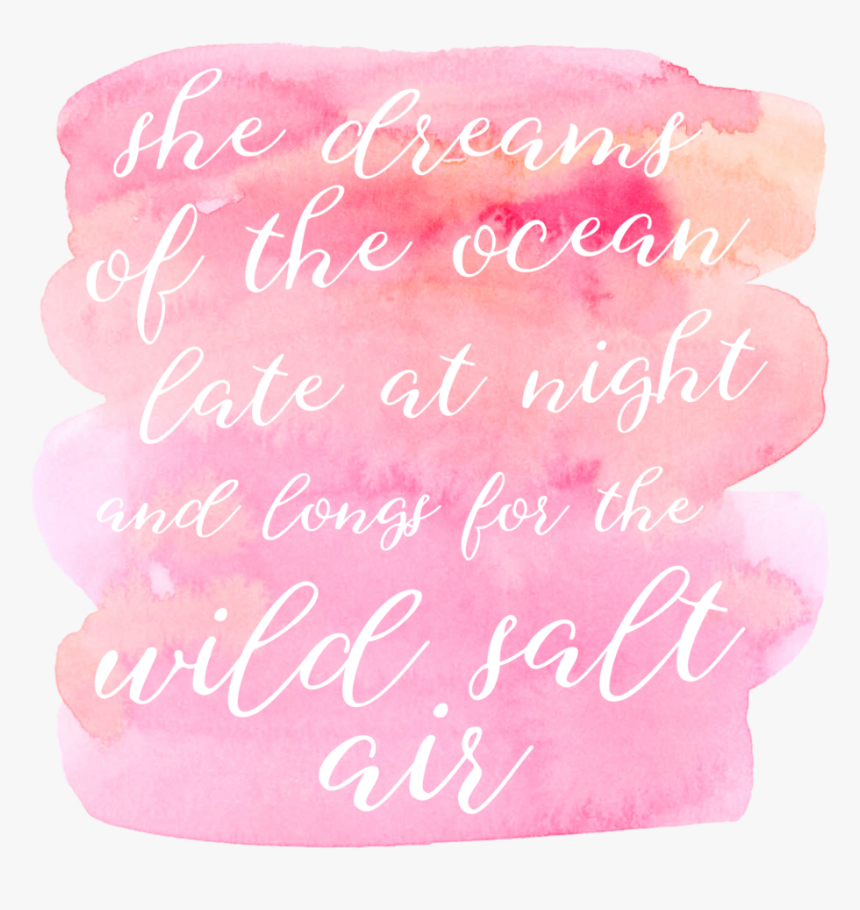 she dreams
of the ocean
late at night
and longs for the
wild salt
air